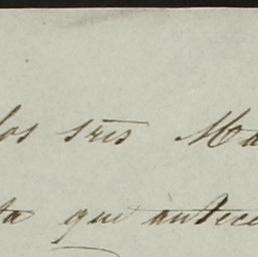 los sres Ma
ta que antece